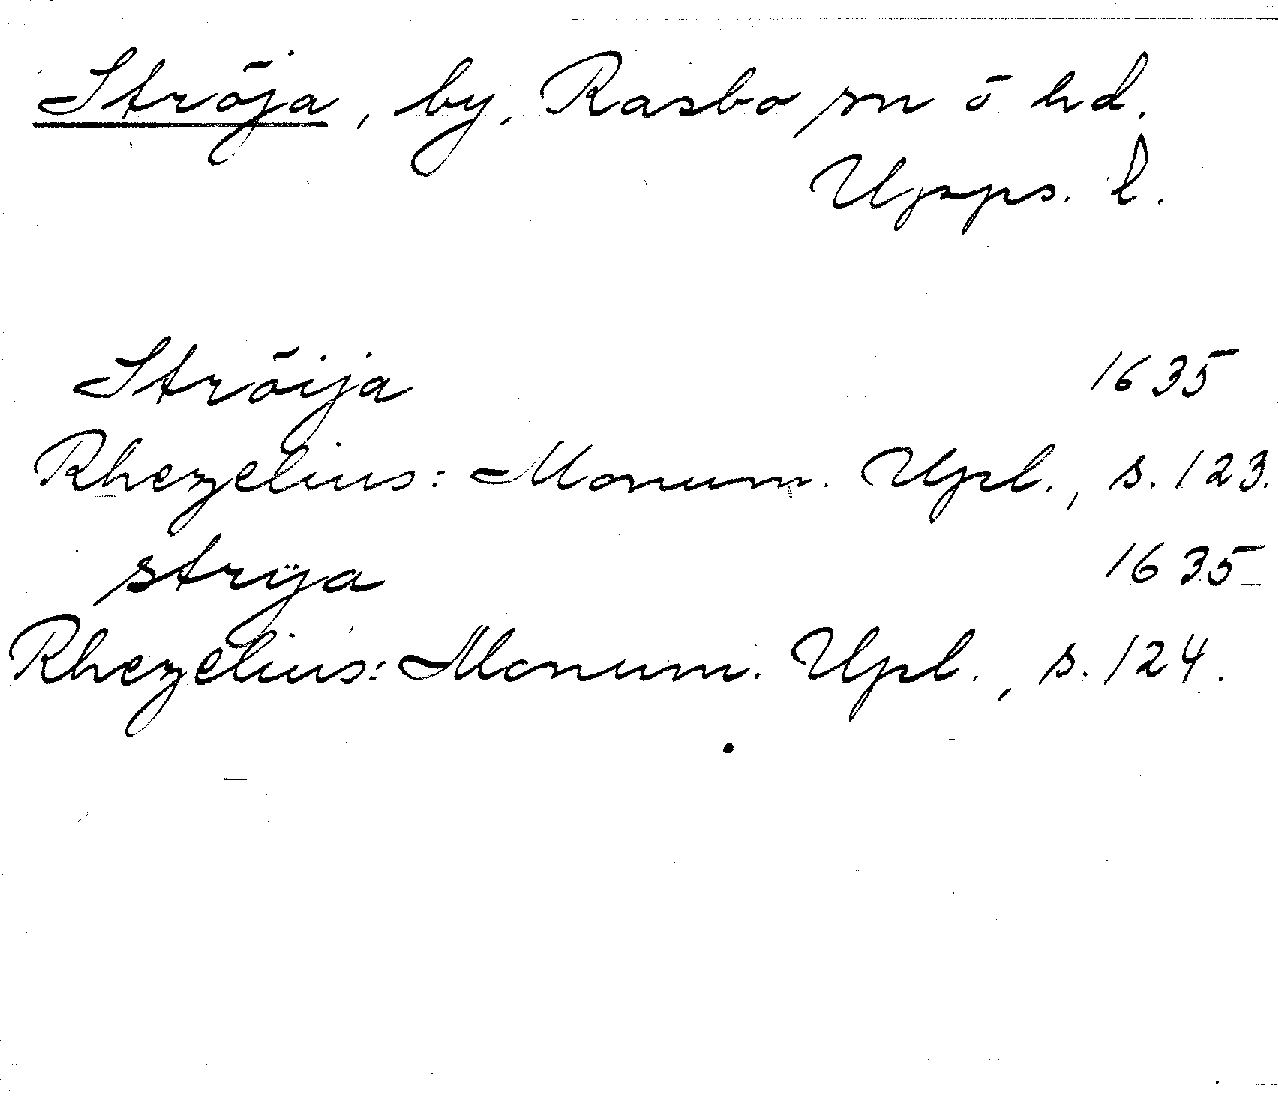 Ströja, by, Rasbo sn ö hd.
Upps. l.
Ströija 1635
Rhezelius: Monum. Upl., s. 123.
strÿa 1635
Rhezelius: Monum. Upl., s. 124.